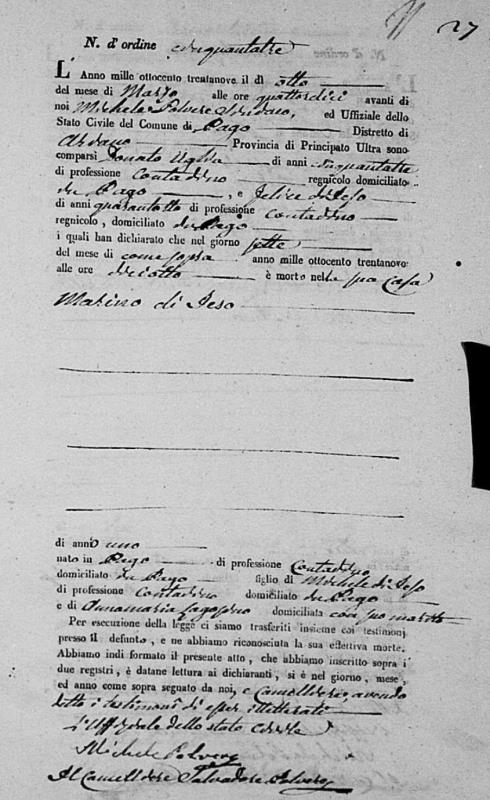 27
N. d'ordine cinquantatre
L'Anno mille ottocento trentanove il dì otto
del mese di Marzo alle ore quattordici avanti di
noi Michele Polvere Sindaco, ed Uffiziale dello
Stato Civile del Comune di Pago Distretto di
Provincia di Principato Ultra sono
comparsi Donato Uglia di anni cinquantatre
di professione Contadino regnicolo domiciliato
in Pago, e Felice di Jeso
di anni quarantotto di professione Contadino
regnicolo, domiciliato in Pago
i quali han dichiarato che nel giorno sette
del mese di come sopra anno mille ottocento trentanove
alle ore diciotto è morto nella sua casa
Marino di Jeso
di anni uno
nato in Pago di professione Contadino
domiciliato in Pago figlio di Michele di Jeso
di professione Contadino domiciliato in Pago
e di Annamaria domiciliata con suo marito
Per esecuzione della legge ci siamo trasferiti insieme coi testimonj
presso il defunto, e ne abbiamo riconosciuta la sua effettiva morte.
Abbiamo indi formato il presente atto, che abbiamo inscritto sopra i
due registri, è datane lettura ai dichiaranti, si è nel giorno, mese,
ed anno come sopra segnato da noi, e Cancelliere, avendo
detto i testimonj di esser illetterati
L'Uffiziale dello stato civile
Michele Polvere
Il Cancelliere Salvadore Polvere